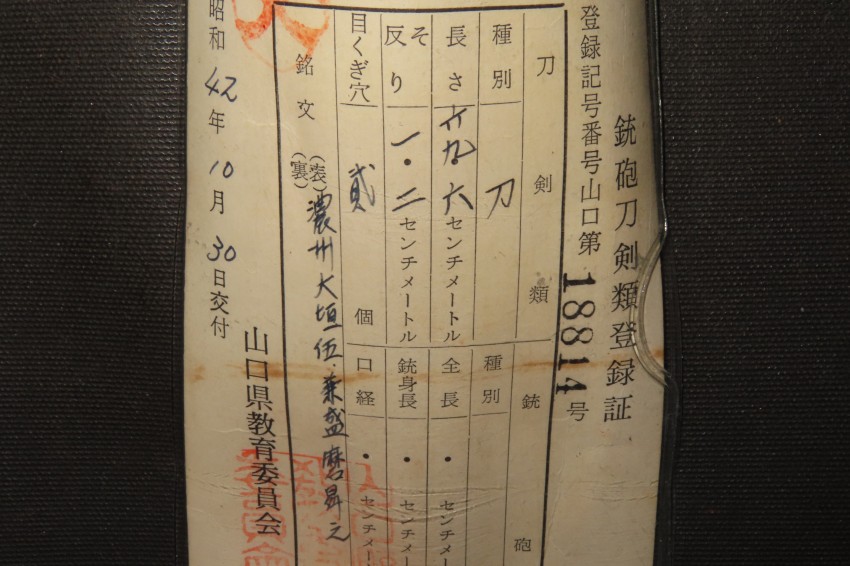 銃砲刀剣類登録証
登録記号番号山口第18814号
刀剣類
銃砲
種別 刀
種別
長さ 六九・六 センチメートル
全長 ・ センチメー
反そり 一・二 センチメートル
銃身長 ・ センチメー
目くぎ穴 貳 個
口経 ・ センチメート
銘文
(表) 濃州大垣住 兼盛 昇之
(裏)
昭和42年10月30日交付
山口県教育委員会